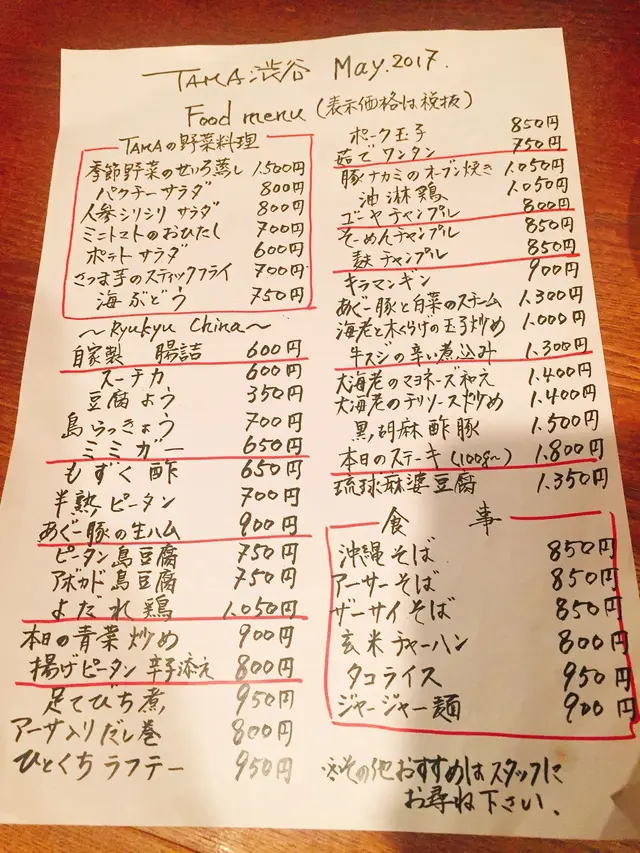 TAMA 渋谷 May.2017.
Food menu (表示価格は税抜)
TAMAの野菜料理
季節野菜のせいろ蒸し 1,500円
パクチーサラダ 800円
人参シリシリ サラダ 800円
ミニトマトのおひたし 700円
ポテトサラダ 600円
さつま芋のスティックフライ 700円
海ぶどう 750円
〜Ryukyu China〜
自家製 腸詰 600円
スーチカ 600円
豆腐よう 350円
島らっきょう 700円
ミミガー 650円
もずく酢 650円
半熟ピータン 700円
あぐー豚の生ハム 900円
ピータン島豆腐 750円
アボカド島豆腐 750円
よだれ鶏 1,050円
本日の青菜炒め 900円
揚げピータン 辛子添え 800円
足てびち煮 950円
アーサ入りだし巻 800円
ひとくちラフテー 950円
ポーク玉子 850円
茹でワンタン 750円
豚ナカミのオーブン焼き 1,050円
油淋鶏 1,050円
ゴーヤチャンプル 800円
そーめんチャンプル 850円
麩チャンプル 850円
キラマンギン 900円
あぐー豚と白菜のスチーム 1,300円
海老と木くらげの玉子炒め 1,000円
牛スジの辛い煮込み 1,300円
大海老のマヨネーズ和え 1,400円
大海老のチリソース炒め 1,400円
黒胡麻酢豚 1,500円
本日のステーキ(100g〜) 1,800円
琉球麻婆豆腐 1,350円
食事
沖縄そば 850円
アーサーそば 850円
ザーサイそば 850円
玄米チャーハン 800円
タコライス 950円
ジャージャー麺 900円
※その他おすすめはスタッフに
お尋ね下さい、